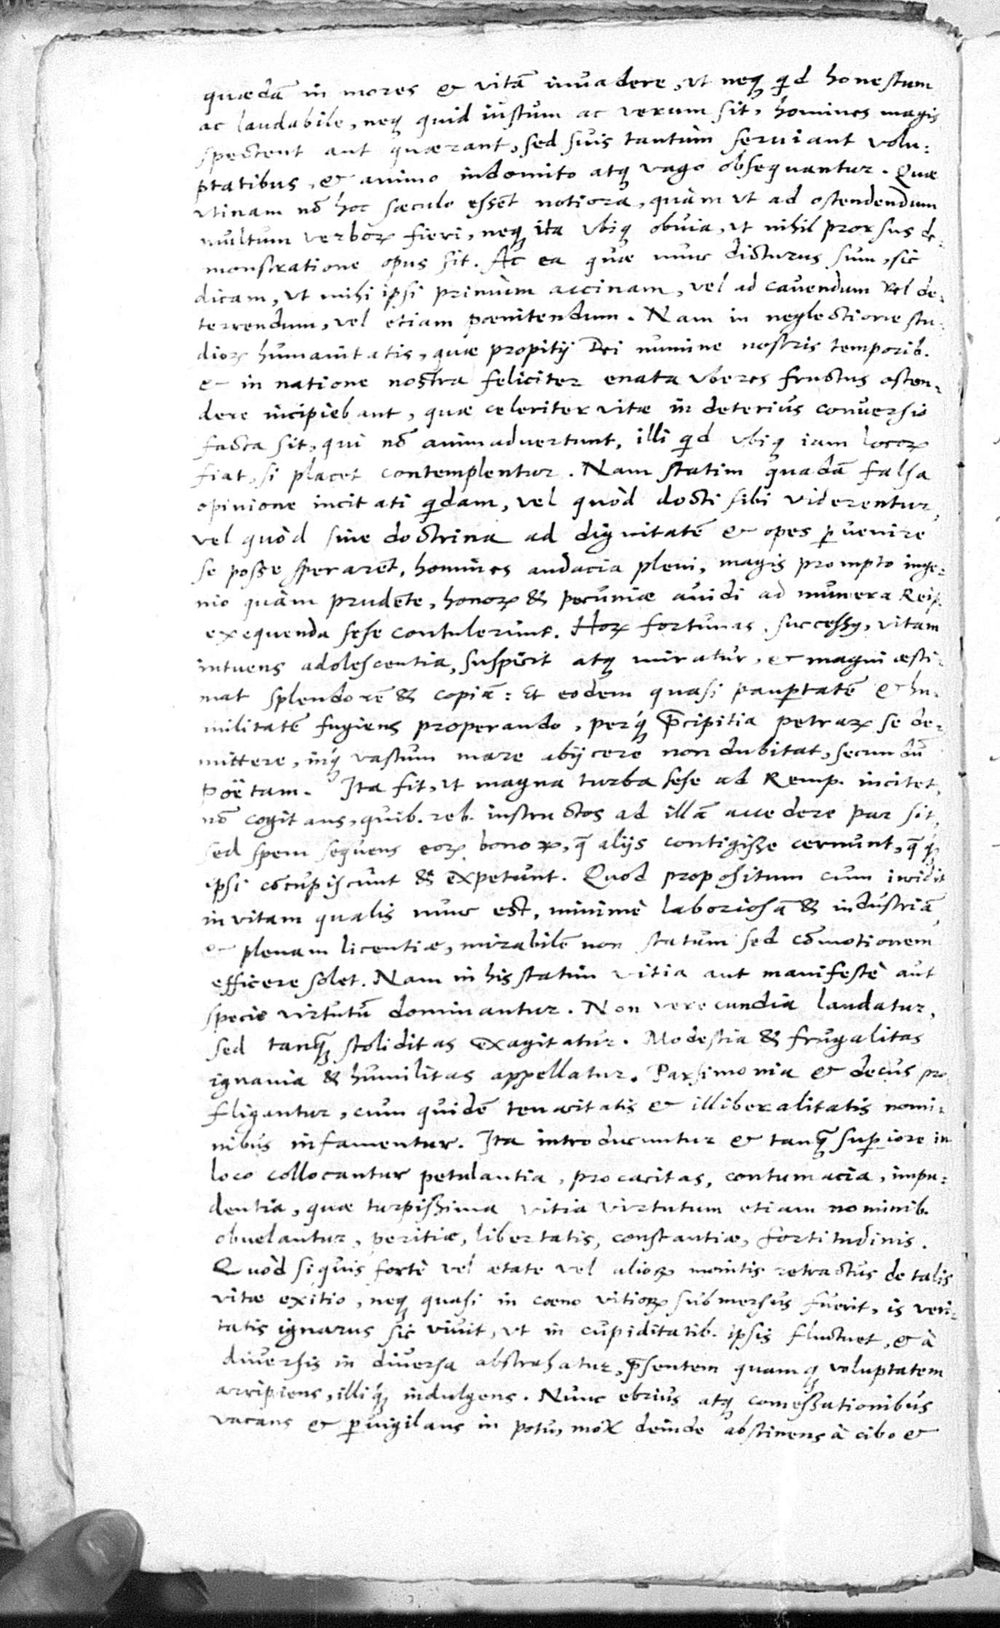 quædã in mores & vitã inuadere, vt neq; qd honestum
ac laudabile, neq; quid iustum ac verum sit, homines magis
spectent aut quærant, sed suis tantùm seruiant volu-
ptatibus, & animo indomito atq; vago obsequantur. Quæ
vtinam nõ hoc sæculo essẽt notiora, quàm vt ad ostendendum
multum verborꝝ fieri, neq; ita vbiq; obuia, vt nihil prorsus de-
monstratione opus sit. Ac ea quæ nunc dicturus sum, sic
dicam, vt mihi ipsi primùm accinam, vel ad cauendum vel de-
terrendum, vel etiam pœnitendum. Nam in neglectione stu-
diorꝝ humanitatis, quæ propitij Dei numine nostris temporib.
& in natione nostra feliciter enata vberes fructus osten-
dere incipiebant, quæ celeriter vitæ in deterius conuersio
facta sit, qui nõ animaduertunt, illi qd vbiq; iam locorꝝ
fiat, si placet contemplentur. Nam statim quadã falsa
opinione incitati qdam, vel quòd docti sibi viderentur,
vel quòd sine doctrina ad dignitatẽ & opes ꝑuenire
se posse sperarẽt, homines audacia pleni, magis prompto inge-
nio quàm prudẽte, honorꝝ & pecuniæ auidi ad munera Reip.
exequenda sese contulerunt. Horꝝ fortunas, successꝰ, vitam
intuens adolescentia, suspicit atq; miratur, & magni æsti-
mat splendorẽ & copiã: Et eodem quasi pauꝑtatẽ & hu-
militatẽ fugiens properando, perq; p̃cipitia petrarꝝ se de-
mittere, inq; vastum mare abijcere non dubitat, secundũ
Poëtam. Ita fit, vt magna turba sese ad Remp. incitet,
nõ cogitans, quib. reb. instructos ad illã accedere par sit,
sed spem sequens eorꝝ bonorꝝ, q̃ alijs contigisse cernunt, q̃q;
ipsi cõcupiscunt & expetunt. Quod propositum cum incidit
in vitam qualis nunc est, minimè laboriosã & industriã,
& plenam licentiæ, mirabilẽ non statum sed cõmotionem
efficere solet. Nam in his statim vitia aut manifestè aut
specie virtutũ dominantur. Non verecundia laudatur,
sed tanq̃ stoliditas exagitatur. Modestia & frugalitas
ignauia & humilitas appellatur. Parsimonia & decus pro-
fligantur, cum quidẽ tenacitatis & illiberalitatis nomi-
nibus infamentur. Ita introducuntur & tanq̃ suꝑiore in
loco collocantur petulantia, procacitas, contumacia, impu-
dentia, quæ turpissima vitia virtutum etiam nominib.
obuelantur, peritiæ, libertatis, constantiæ, fortitudinis.
Quòd si quis fortè vel ætate vel aliorꝝ monitis retractus de talis
vitæ exitio, neq; quasi in cœno vitiorꝝ submersus fuerit, is veri-
tatis ignarus sic viuit, vt in cupiditatib. ipsis fluctuet, & à
diuersis in diuersa abstrahatur, p̃sentem quamq; voluptatem
arripiens, illiq; indulgens. Nunc ebrius atq; comessationibus
vacans & ꝑuigilans in potu, mox deinde abstinens à cibo &